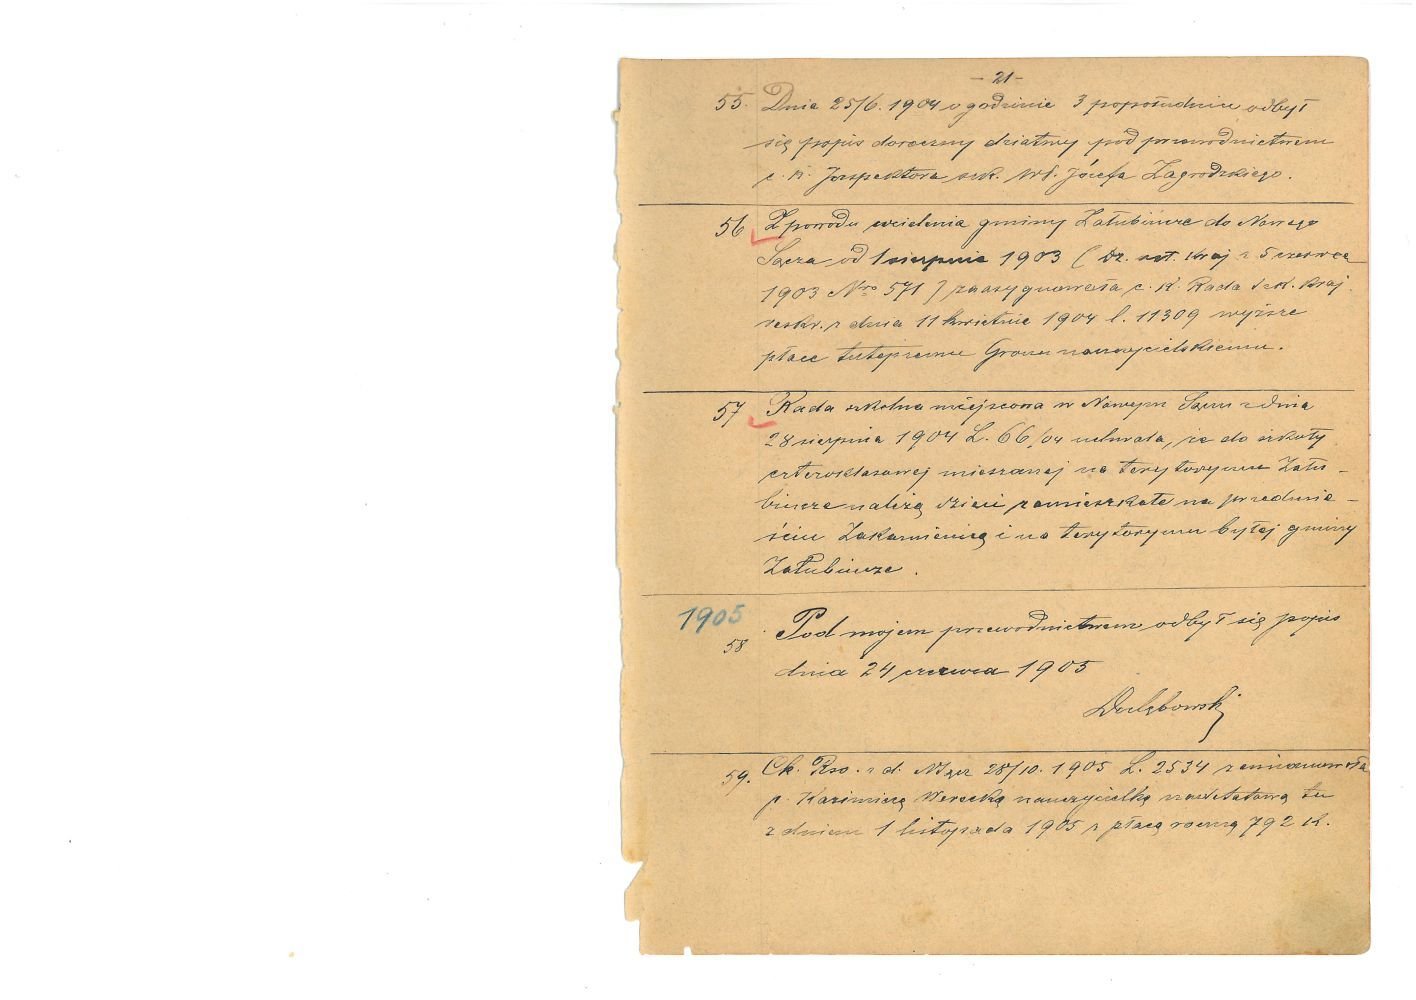 - 21 -
55. Dnia 25/6. 1904 o godzinie 3 popołudniu odbył
się popis doroczny dziatwy pod przewodnictwem
c. k. Inspektora szk. Wł. Józefa Zagrodzkiego.
56 Z powodu wcielenia gminy Załubincze do Nowego
Sącza od 1 sierpnia 1903 ( Dz. ust. kraj z 5 czerwca
1903 Nro 571 ) zaasygnowała c. k. Rada szk. kraj.
reskr. z dnia 11 kwietnia 1904 l. 11309 wyższe
płace tutejszemu Gronu nauczycielskiemu.
57 Rada szkolna miejscowa w Nowym Sączu z dnia
28 sierpnia 1904 L. 66/04 uchwala, że do szkoły
czteroklasowej mieszanej na terytoryum Zału-
bincze należą dzieci zamieszkałe na przedmie-
ściu Zakamienicą i na terytoryum byłej gminy
Załubincze.
1905
58 Pod mojem przewodnictwem odbył się popis
dnia 24 czerwca 1905
59. Ck. Rso. z d. NSącz 28/10. 1905 L. 2534 zamianowała
p. Kazimierę nauczycielką nadetatową tu
z dniem 1 listopada 1905 z płacą roczną 792 K.